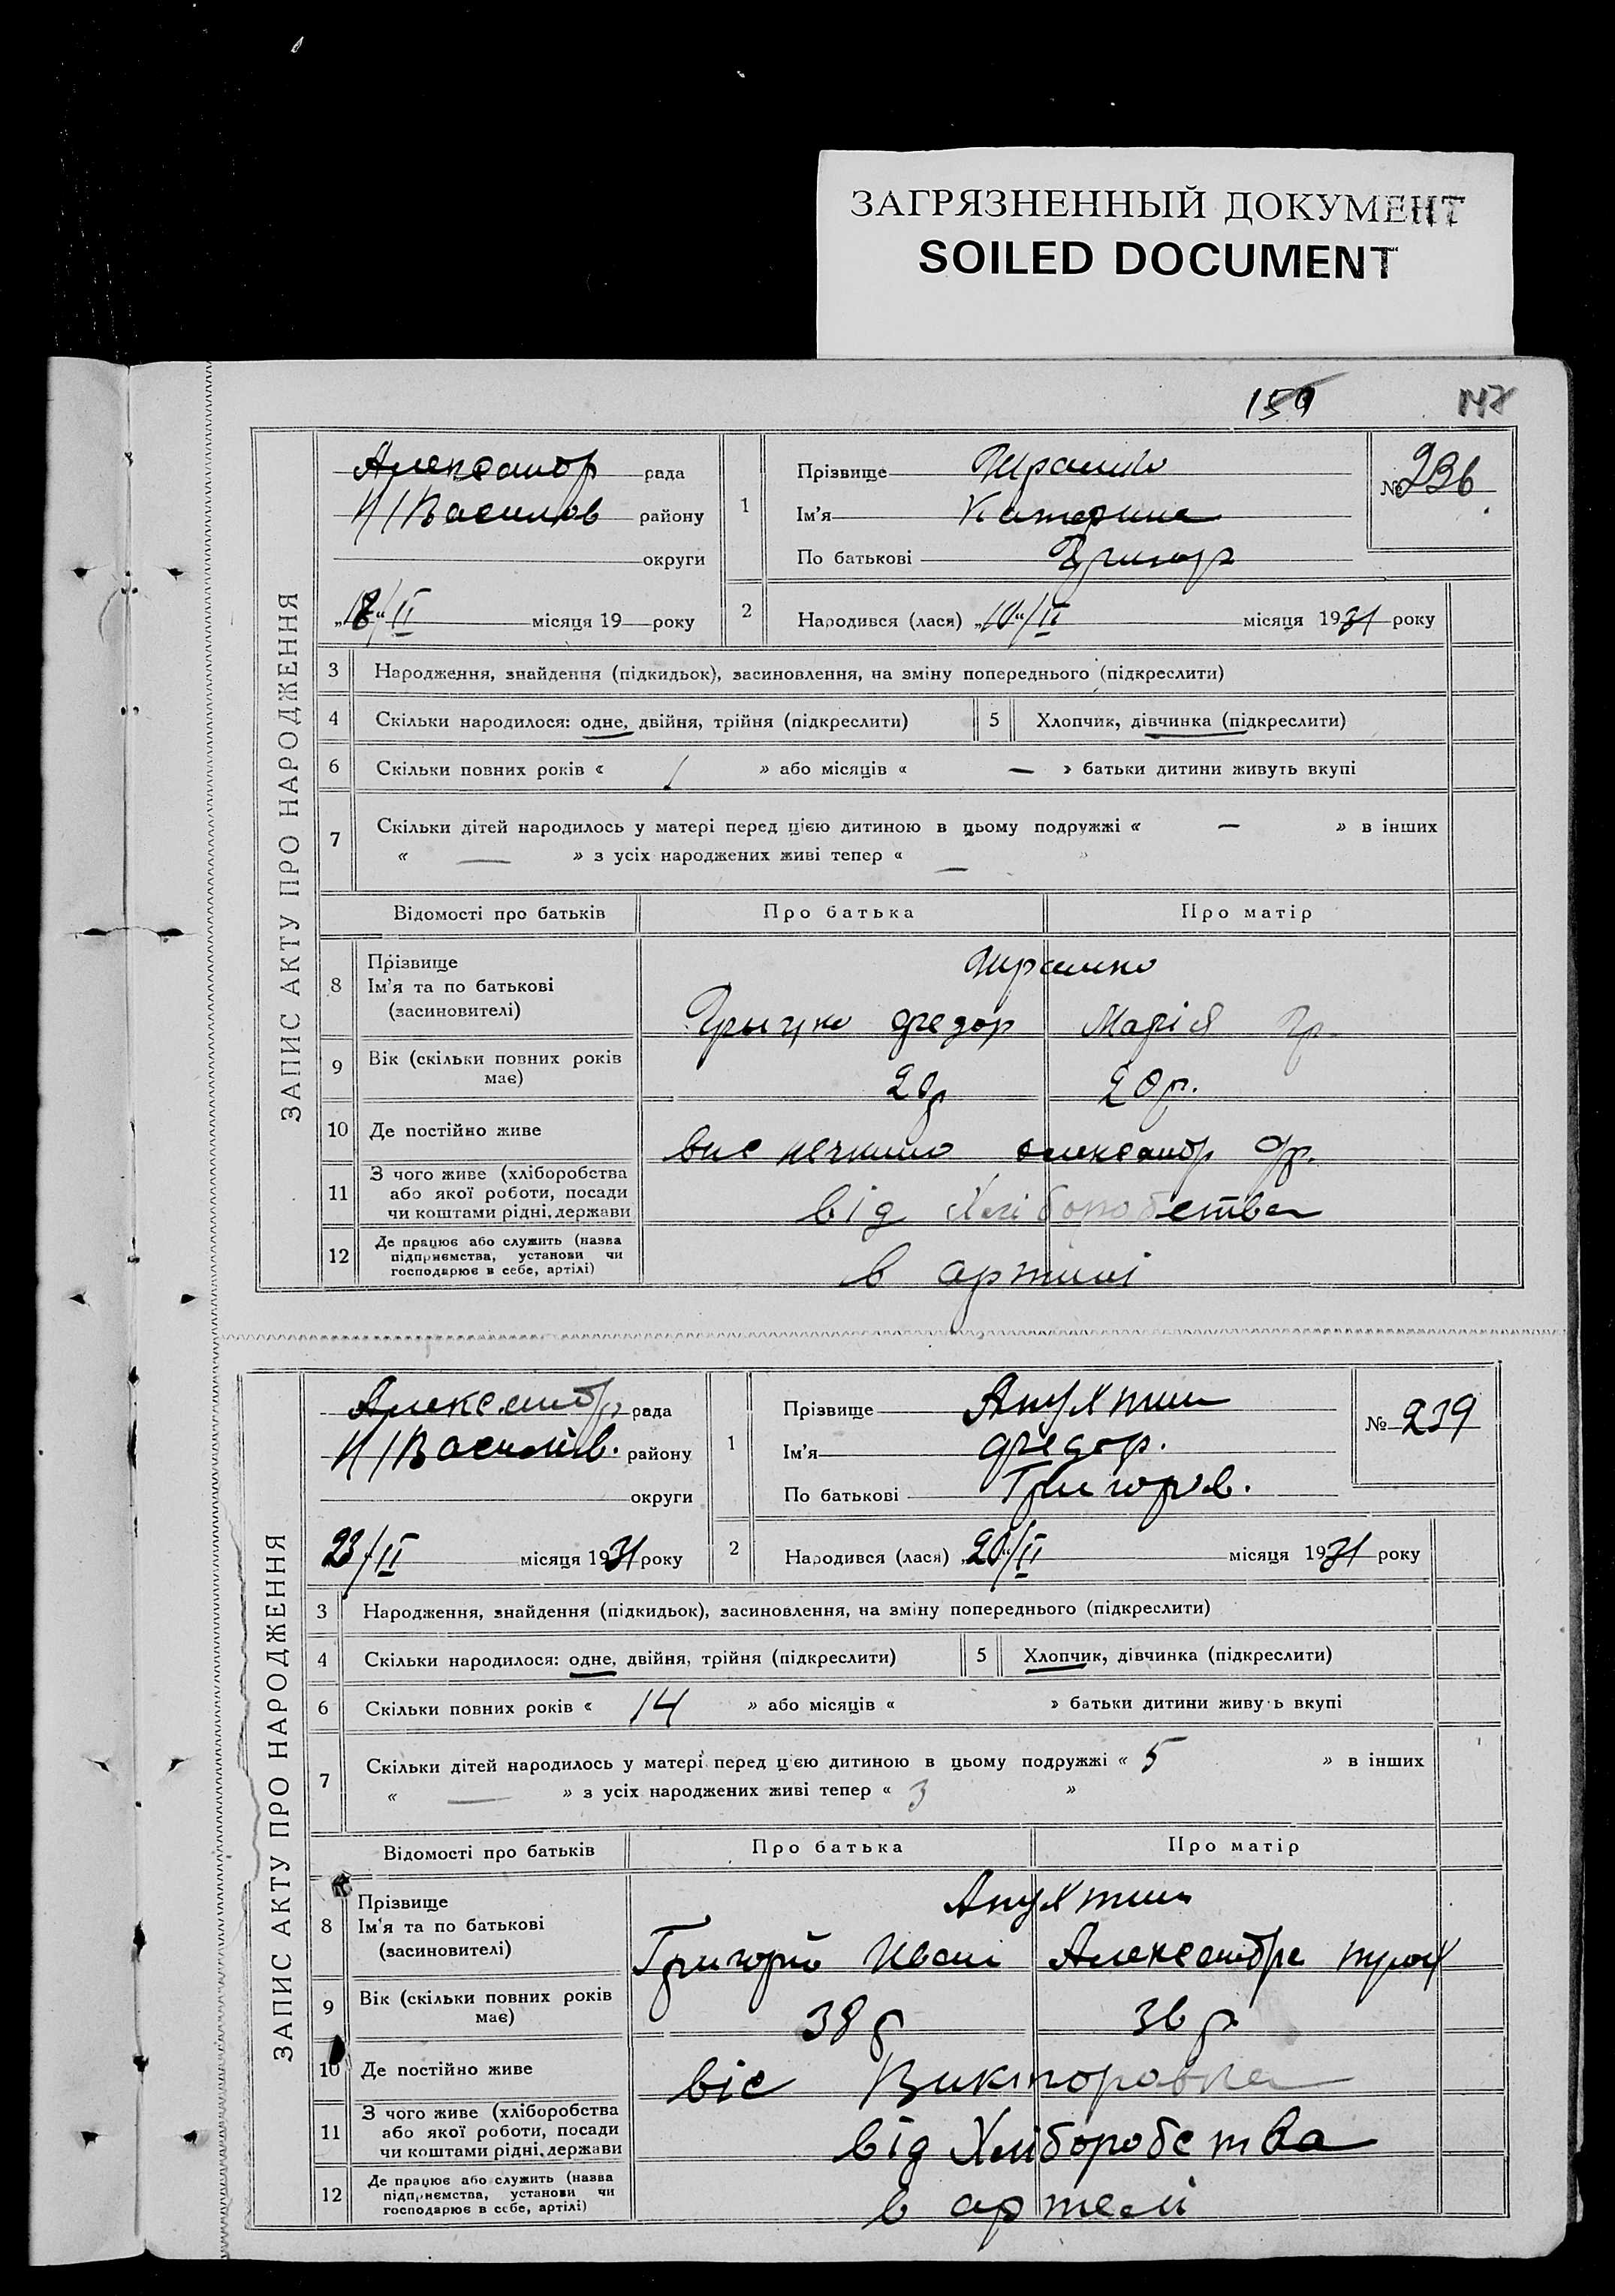 ЗАГРЯЗНЕННЫЙ ДОКУМЕНТ
SOILED DOCUMENT
159
147
ЗАПИС АКТУ ПРО НАРОДЖЕННЯ
Александр рада
Н/Василов району
округи
1
Прізвище
Ім'я Катерина
По батькові Григор
№ 236
„18“/II місяця 19 року
2 Народився (лася) „10“/II місяця 1931 року
3 Народження, знайдення (підкидьок), засиновлення, на зміну попереднього (підкреслити)
4 Скільки народилося: одне, двійня, трійня (підкреслити) 5 Хлопчик, дівчинка (підкреслити)
6 Скільки повних років « 1 » або місяців « — » батьки дитини живуть вкупі
7 Скільки дітей народилось у матері перед цією дитиною в цьому подружжі « — » в інших
« — » з усіх народжених живі тепер « — »
Відомості про батьків Про батька Про матір
8 Прізвище
Ім'я та по батькові
(засиновителі)
Грицко Федор Марія Гр
9 Вік (скільки повних років має)
20р 20р.
10 Де постійно живе
александр
11 З чого живе (хліборобства або якої роботи, посади чи коштами рідні, держави
від Хліборобства
12 Де працює або служить (назва підприємства, установи чи господарює в себе, артілі)
в артилі
ЗАПИС АКТУ ПРО НАРОДЖЕННЯ
Александр. рада
Н/Василів. району
округи
1
Прізвище Апухтин
Ім'я Федор.
По батькові Григоров.
№ 239
23/II місяця 1931 року
2 Народився (лася) „20“/II місяця 1931 року
3 Народження, знайдення (підкидьок), засиновлення, на зміну попереднього (підкреслити)
4 Скільки народилося: одне, двійня, трійня (підкреслити) 5 Хлопчик, дівчинка (підкреслити)
6 Скільки повних років « 14 » або місяців « » батьки дитини живуь вкупі
7 Скільки дітей народилось у матері перед цією дитиною в цьому подружжі « 5 » в інших
« — » з усіх народжених живі тепер « 3 »
Відомості про батьків Про батька Про матір
8 Прізвище
Ім'я та по батькові
(засиновителі)
Апухтин
Григорій Иван Александра
9 Вік (скільки повних років має)
38 р 36 р
10 Де постійно живе
віс Викторовка
11 З чого живе (хліборобства або якої роботи, посади чи коштами рідні, держави
від Хліборобства
12 Де працює або служить (назва підприємства, установи чи господарює в себе, артілі)
в артелі